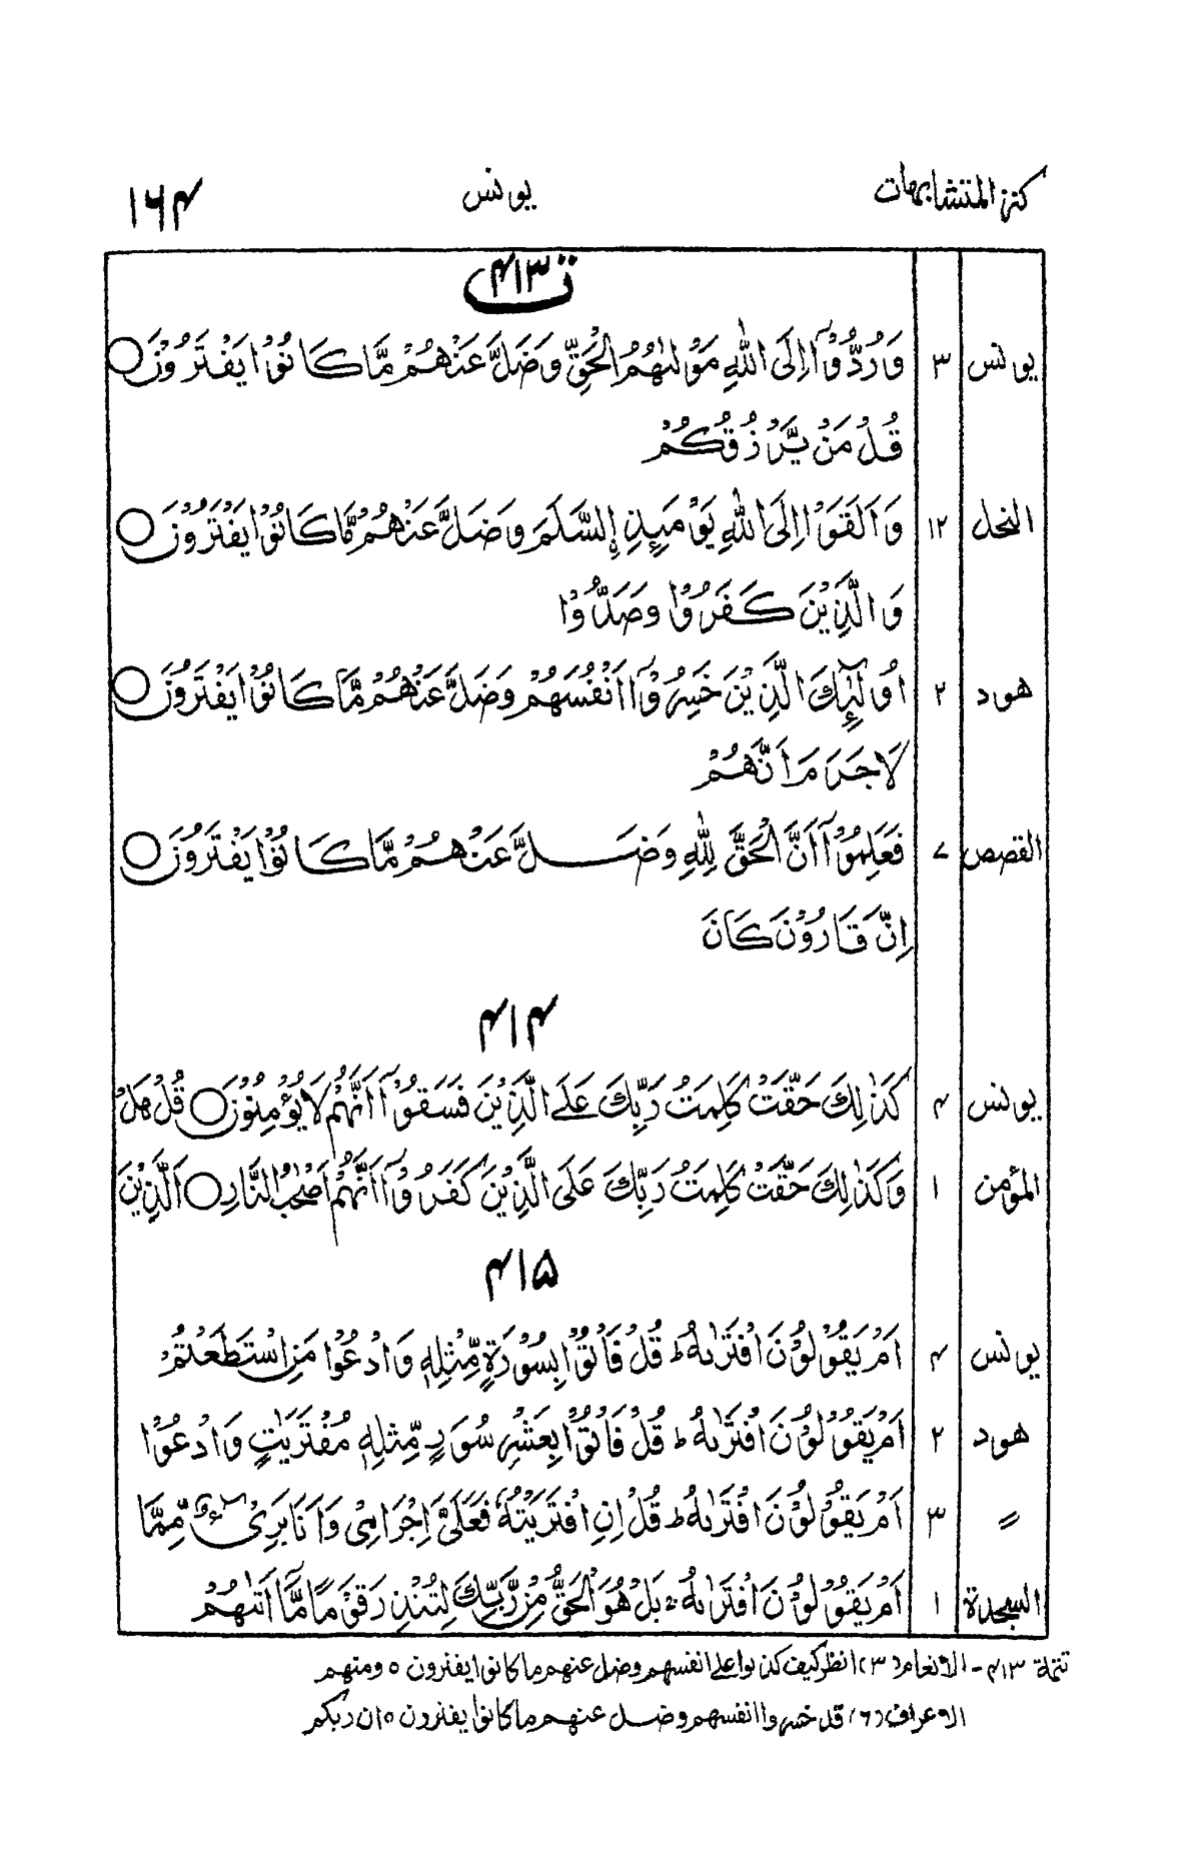 كنز المتشابهات يونس ۱۶۴
ت ۴۱۳
يونس ۳ وَرُدُّوْٓا اِلَى اللّٰهِ مَوْلٰىهُمُ الْحَقِّ وَضَلَّ عَنْهُمْ مَّا كَانُوْا يَفْتَرُوْنَ ○
قُلْ مَنْ يَّرْزُقُكُمْ
النحل ۱۲ وَاَلْقَوْا اِلَى اللّٰهِ يَوْمَئِذِ إِلسَّلَمَ وَضَلَّ عَنْهُمْ مَّا كَانُوْا يَفْتَرُوْنَ ○
وَالَّذِيْنَ كَفَرُوْا وَصَدُّوْا
هود ۲ اُولٰٓئِكَ الَّذِيْنَ خَسِرُوْٓا اَنْفُسَهُمْ وَضَلَّ عَنْهُمْ مَّا كَانُوْا يَفْتَرُوْنَ ○
لَاجَرَمَ اَنَّهُمْ
القصص ۷ فَعَلِمُوْٓا اَنَّ الْحَقَّ لِلّٰهِ وَضَلَّ عَنْهُمْ مَّا كَانُوْا يَفْتَرُوْنَ ○
اِنَّ قَارُوْنَ كَانَ
۴۱۴
يونس ۴ كَذٰلِكَ حَقَّتْ كَلِمَتُ رَبِّكَ عَلَى الَّذِيْنَ فَسَقُوْٓا اَنَّهُمْ لَا يُؤْمِنُوْنَ ○ قُلْ هَلْ
المؤمن ۱ وَكَذٰلِكَ حَقَّتْ كَلِمَتُ رَبِّكَ عَلَى الَّذِيْنَ كَفَرُوْٓا اَنَّهُمْ اَصْحٰبُ النَّارِ ○ اَلَّذِيْنَ
۴۱۵
يونس ۴ اَمْ يَقُوْلُوْنَ افْتَرٰىهُ ط قُلْ فَاْتُوْا بِسُوْرَةٍ مِّثْلِهٖ وَادْعُوْا مَنِ اسْتَطَعْتُمْ
هود ۲ اَمْ يَقُوْلُوْنَ افْتَرٰىهُ ط قُلْ فَاْتُوْا بِعَشْرِ سُوَرٍ مِّثْلِهٖ مُفْتَرَيٰتٍ وَادْعُوْا
〃 ۳ اَمْ يَقُوْلُوْنَ افْتَرٰىهُ ط قُلْ اِنِ افْتَرَيْتُهٗ فَعَلَىَّ اِجْرَامِىْ وَاَنَا بَرِىْٓءٌ مِّمَّا
السجدة ۱ اَمْ يَقُوْلُوْنَ افْتَرٰىهُ ۚ بَلْ هُوَ الْحَقُّ مِنْ رَّبِّكَ لِتُنْذِرَ قَوْمًا مَّآ اَتٰىهُمْ
تتملة ۴۱۳ - الانعام (۳) انظر كيف كذبوا على انفسهم وضل عنهم ما كانوا يفترون ○ ومنهم
الاعراف (۶) قد خسروا انفسهم وضل عنهم ما كانوا يفترون ○ ان ربكم